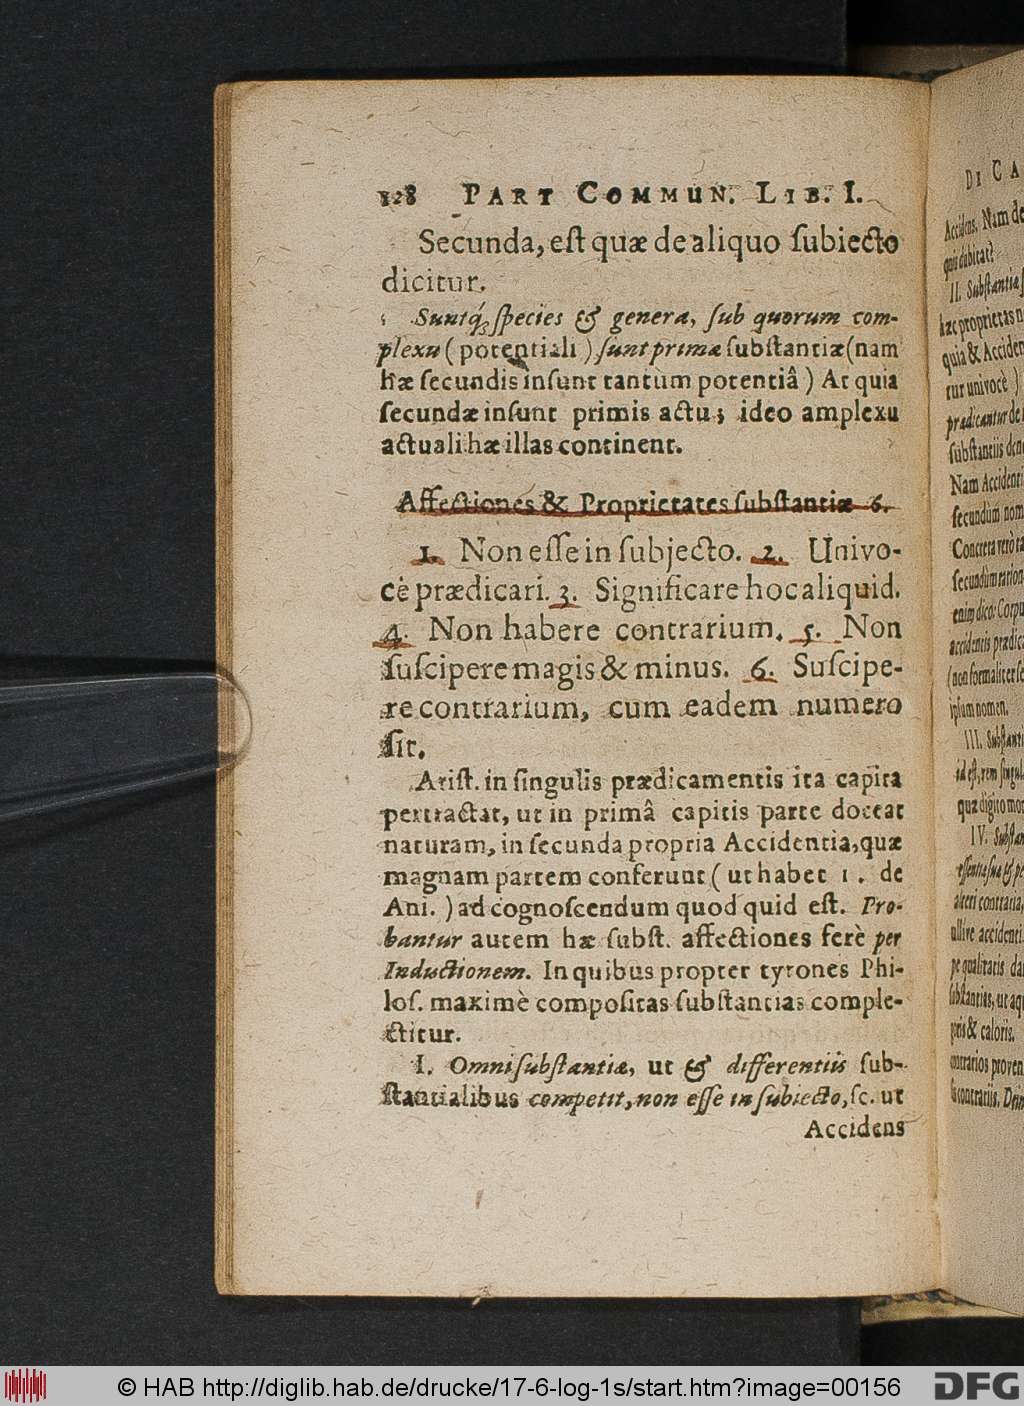 128 PART COMMUN. LIB. I.
Secunda, eſt quæ de aliquo ſubiecto
dicitur.
Suntq́ꝫ ſpecies & genera, ſub quorum com-
plexu (potentiali) ſunt primæ ſubſtantiæ (nam
hæ ſecundis inſunt tantùm potentiâ) At quia
ſecundæ inſunt primis actu; ideo amplexu
actuali hæ illas continent.
Affectiones & Proprietates ſubſtantiæ 6.
1. Non eſſe in ſubjecto. 2. Univo-
cè prædicari. 3. Significare hoc aliquid.
4. Non habere contrarium. 5. Non
ſuſcipere magis & minus. 6. Suſcipe-
re contrarium, cum eadem numero
ſit.
Ariſt. in ſingulis prædicamentis ita capita
pertractat, ut in primâ capitis parte doceat
naturam, in ſecunda propria Accidentia, quæ
magnam partem conferunt (ut habet 1. de
Ani.) ad cognoſcendum quod quid eſt. Pro-
bantur autem hæ ſubſt. affectiones ferè per
Inductionem. In quibus propter tyrones Phi-
loſ. maximè compoſitas ſubſtantias comple-
ctitur.
I. Omni ſubſtantiæ, ut & differentiis ſub-
ſtantialibus competit, non eſſe in ſubiecto, ſc. ut
Accidens
DE CA
Accidens. Nam de
quis dubitat?
II. Subſtantiæ
hæc proprietas n
quia & Acciden
tur univocè)
prædicantur de
ſubſtantiis den
Nam Accidenti
ſecundùm nom
Concreta verò ta
ſecundùm ration
enim dico: Corpu
accidentis prædica
(non formaliter ſe
ipſum nomen.
III. Subſtanti
id eſt, rem ſingul
quæ digito mon
IV. Subſtan
eſſentia ſua & pe
alteri contraria,
ullive accidenti
pe qualitatis da
ſubſtantias, ut aqu
goris & caloris.
contrarios proven
ſis contrariis. Dein
© HAB http://diglib.hab.de/drucke/17-6-log-1s/start.htm?image=00156
DFG